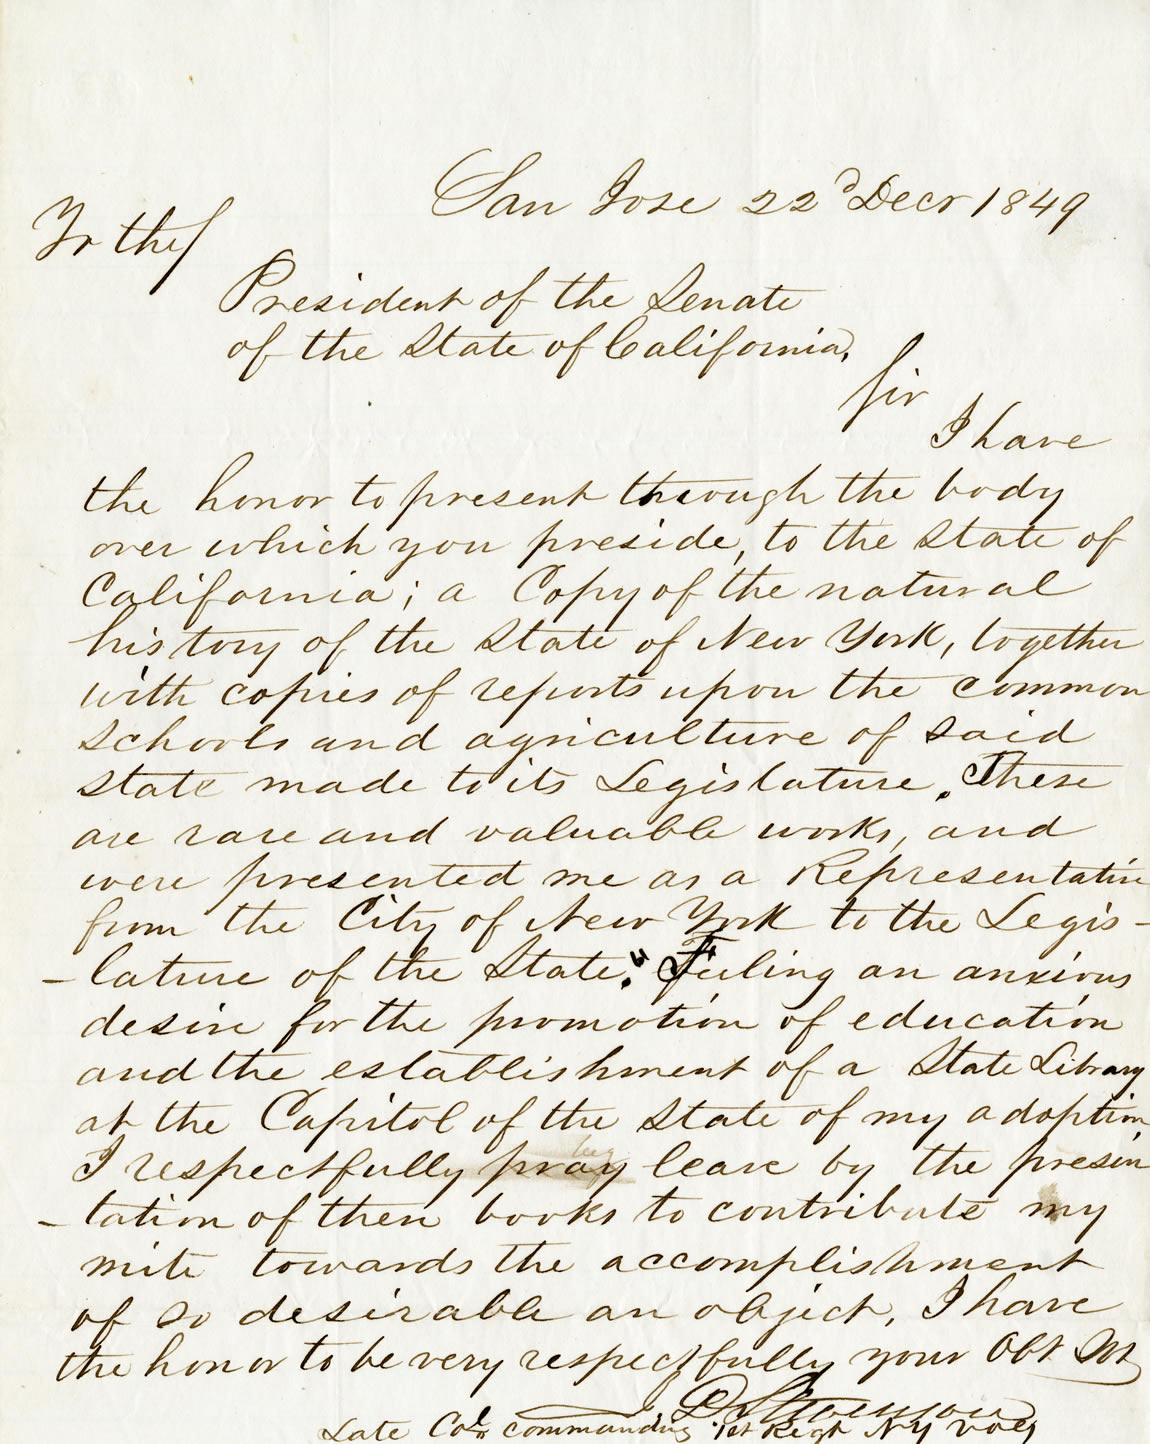 San Jose 22d Decr 1849
To the
President of the Senate
of the State of California,
Sir
I have
the honor to present through the body
over which you preside, to the State of
California; a Copy of the natural
history of the State of New York, together
with copies of reports upon the common
schools and agriculture of said
state made to its Legislature. These
are rare and valuable works, and
were presented me as a Representative
from the City of New York to the Legis-
-lature of the State. Feeling an anxious
desire for the promotion of education
and the establishment of a State Library
at the Capitol of the State of my adoption,
I respectfully pray leave by the presen
-tation of these books to contribute my
mite towards the accomplishment
of so desirable an object, I have
the honor to be very respectfully your Obt Svt
J D Stevenson
Late Col. commanding 1st Regt NY Vols